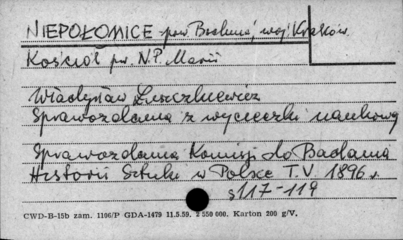 NIEPOŁOMICE pow. Bochnia, woj. Kraków
Kościół pw. N.P. Marii
Władysław Łuszczkiewicz
Sprawozdania z wycieczki naukowej
Sprawozdania Komisji do Badania
Historii Sztuki w Polsce T.V. 1896 r.
s 117-119
CWD-B-15b zam. 1106/P GDA-1479 11.5.59. 2 550 000. Karton 200 g/V.